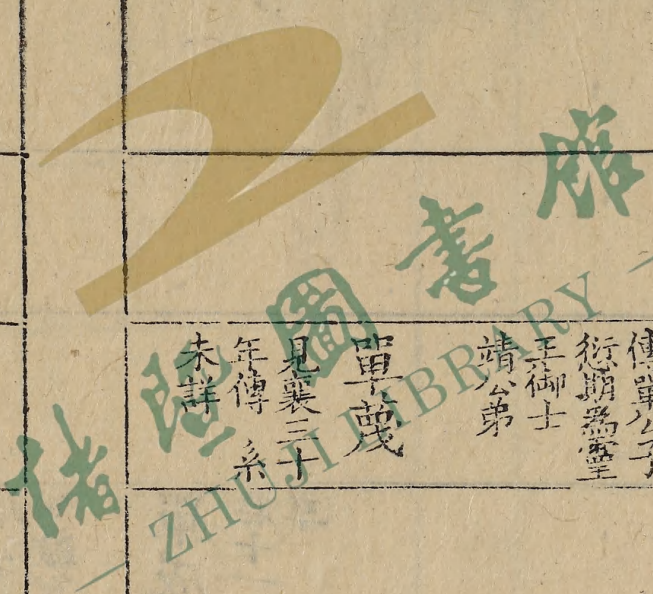 傳單公子
愆期為靈
王御士
靖公弟
單蔑
見襄三十
年傳　系
未詳
諸暨圖書館
ZHUJI LIBRARY